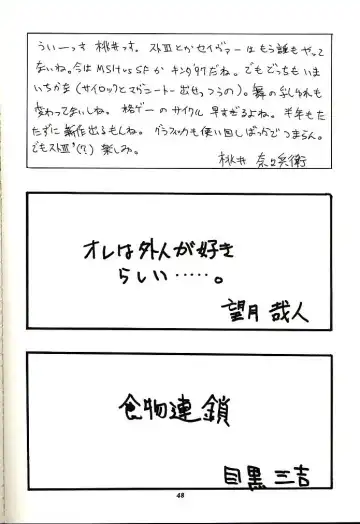 ういーっす 桃井っす。ストⅢとかセイヴァーはもう誰もやって
ないね。今はMSHvsSFか キング97だね。でもどっちもいま
いちかな(サイロックとマグニートー出せっつうの)。舞の乳しれも
変わってないしね。格ゲーのサイクル 早すぎるよね。半年もた
たずに新作出るもんね。グラフィックも使い回しばっかでつまらん。
でもストⅢ'(?)楽しみ。
桃井 奈々兵衛
オレは外人が好き
らしい……。
望月 哉人
食物連鎖
目黒 三吉
48